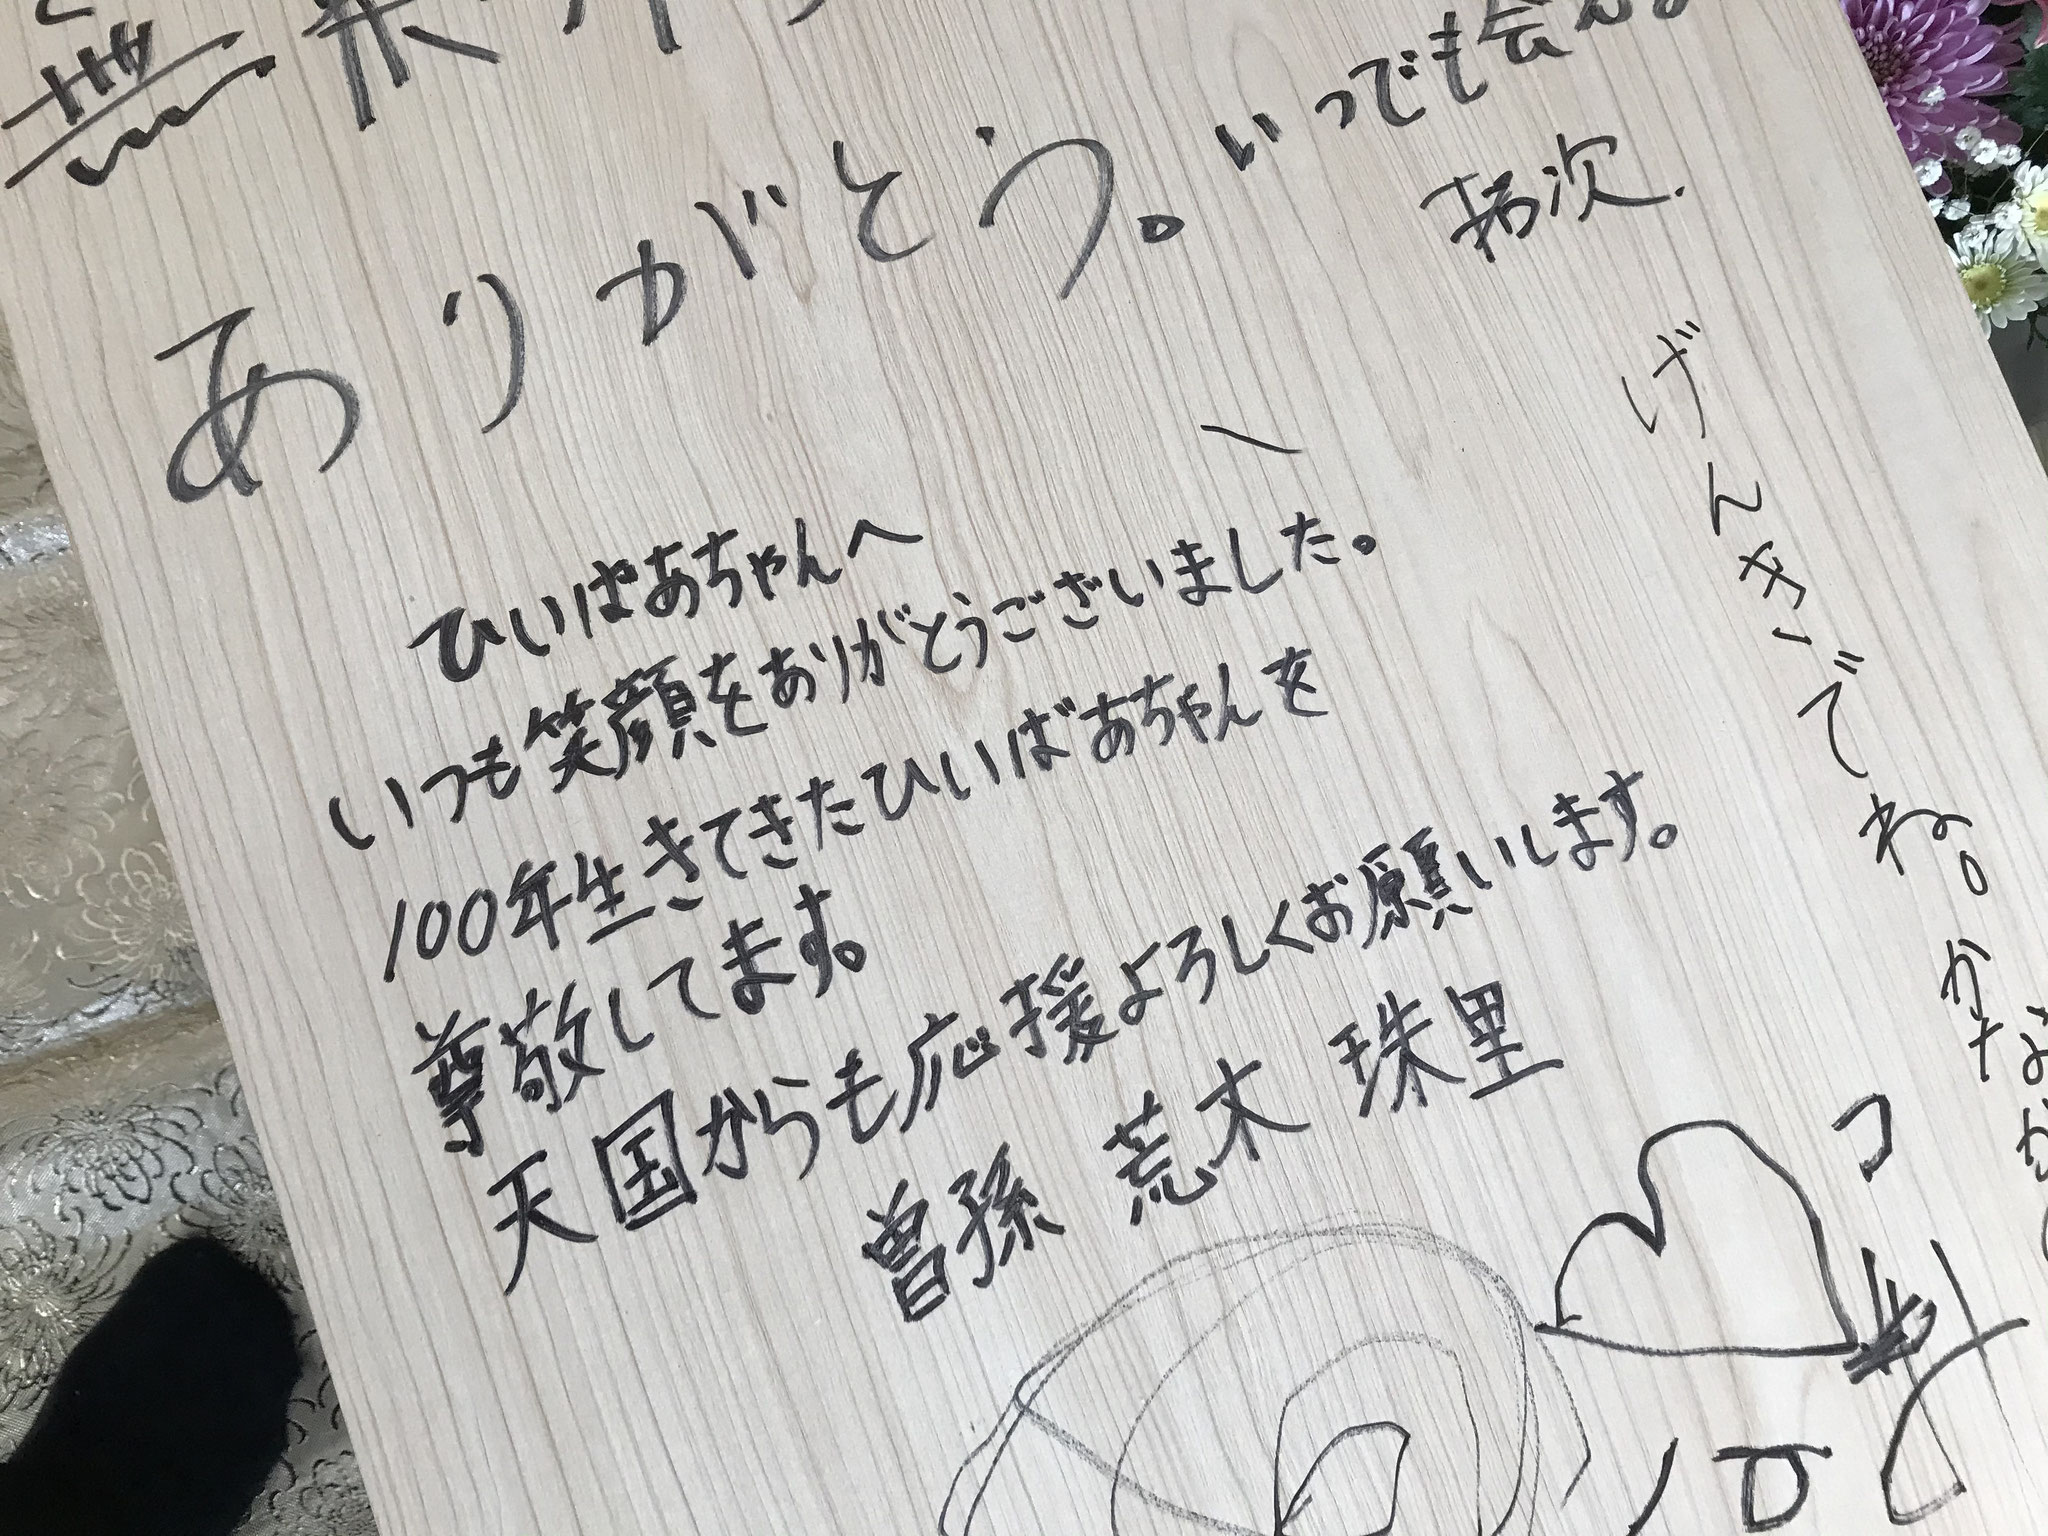 ありがとう。
いつでも会える
げんきでね。
ひいばあちゃんへ
いつも笑顔をありがとうございました。
100年生きてきたひいばあちゃんを
尊敬してます。
天国からも応援よろしくお願いします。
曽孫 荒木 珠里